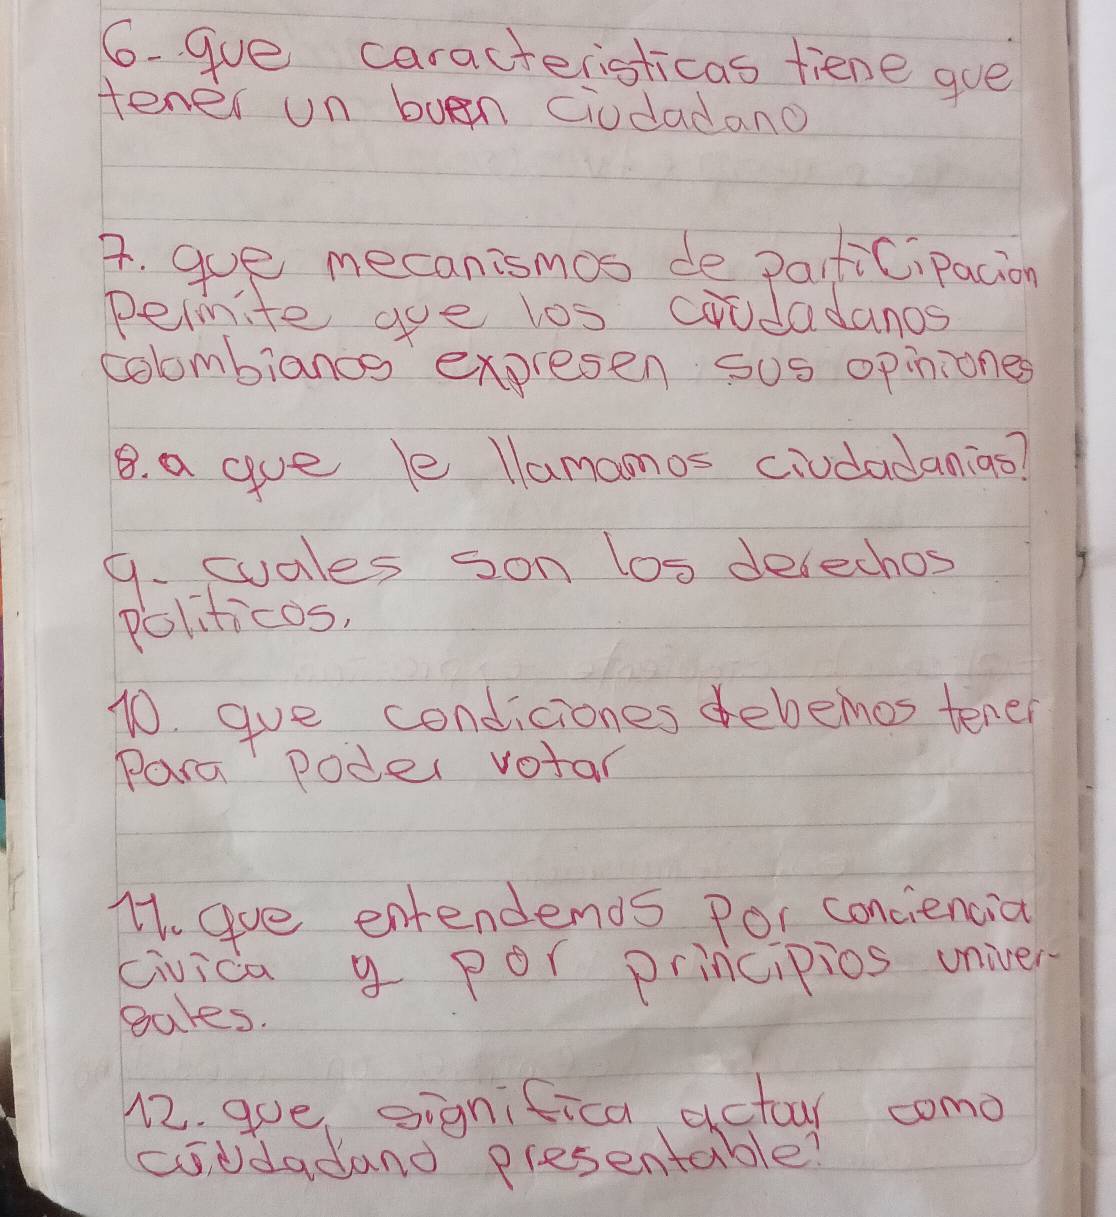 6- que caracteristicas tiene que
tener un buen ciudadano
7. que mecanismos de participacion
permite que los ciudadanos
colombianos expresen sus opiniones
8. a que le llamamos ciudadanias?
9- cuales son los derechos
politicos.
10. que condiciones debemos tener
para poder votar
11. que entendemos por conciencia
civica y por principios univer-
sales.
12. que significa actuar como
ciudadano presentable?